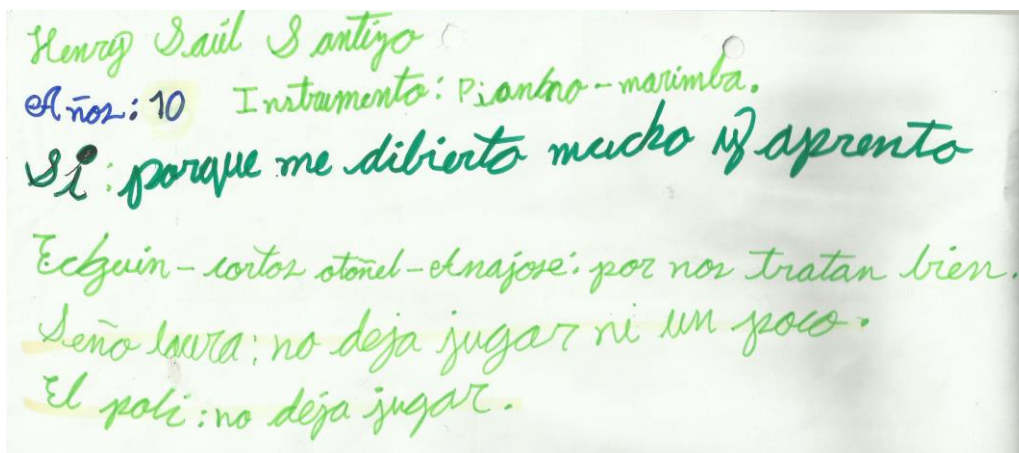 Henry Saúl Santizo
Años: 10 Instrumento: Pianbno-marimba.
Si: porque me dibierto mucho y aprento
Edguin-cortos otoñel-Anajose: por nos tratan bien.
Seño laura: no deja jugar ni un poco.
El poli: no deja jugar.